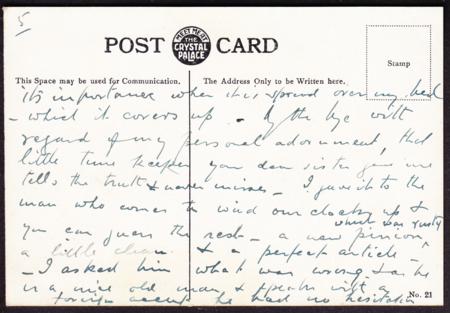 5
POST CARD
MEET ME AT
THE
CRYSTAL
PALACE
Stamp
This Space may be used for Communication.
The Address Only to be Written here.
its importance when it is spread over my bed
- which it covers up - By the bye with
regard to my personal adornment, that
little time keeper you dear sister gave me
tells the truth & never misses - I gave it to the
man who comes to wind our clocks up &
you can guess the rest - a new pinion, which was rusty
a little clean & a perfect article -
- I asked him what was wrong & as he
is a nice old man, & speaks with a
foreign accent he had no hesitation
No. 21